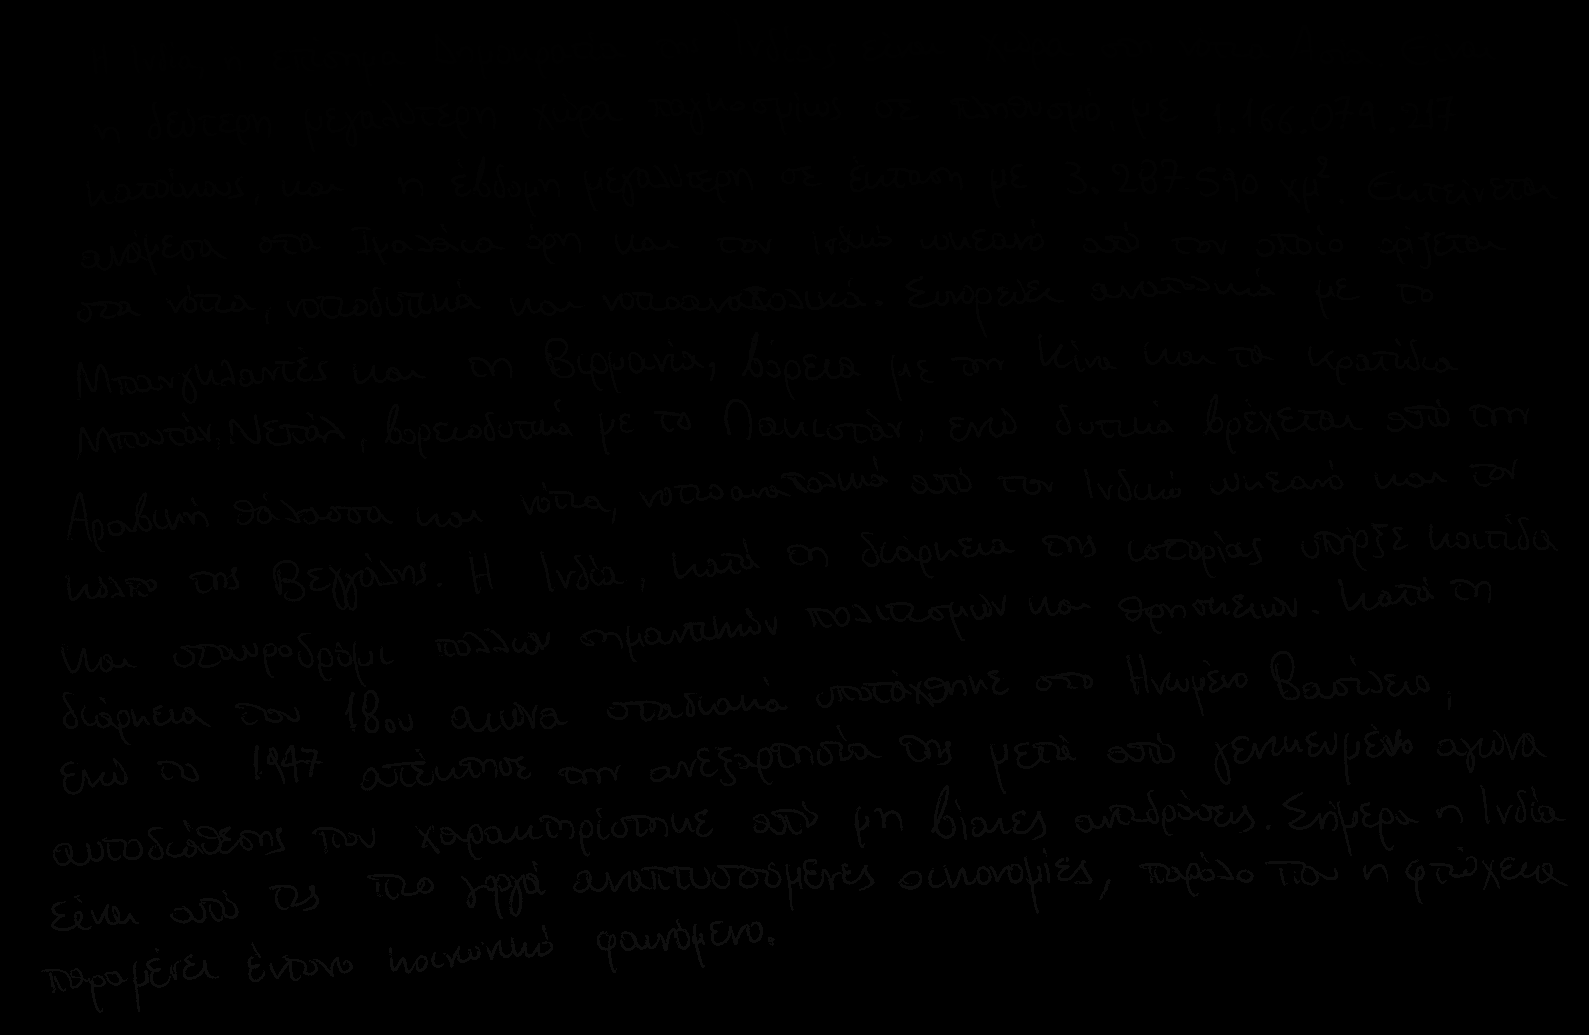 η δεύτερη μεγαλύτερη χώρα παγκοσμίως σε πληθυσμό, με 1.166.079.217
κατοίκους, και η έβδομη μεγαλύτερη σε έκταση με 3.287.590 χμ². Εκτείνεται
ανάμεσα στα Ιμαλάια όρη και τον Ινδικό ωκεανό από τον οποίο ορίζεται
στα νότια, νοτιοδυτικά και νοτιοανατολικά. Συνορεύει ανατολικά με το
Μπανγκλαντές και τη Βιρμανία, βόρεια με την Κίνα και τα κρατίδια
Μπουτάν, Νεπάλ, βορειοδυτικά με το Πακιστάν, ενώ δυτικά βρέχεται από την
Αραβική θάλασσα και νότια, νοτιοανατολικά από τον Ινδικό ωκεανό και τον
κόλπο της Βεγγάλης. Η Ινδία, κατά τη διάρκεια της ιστορίας υπήρξε κοιτίδα
και σταυροδρόμι πολλών σημαντικών πολιτισμών και θρησκειών. Κατά τη
διάρκεια του 18ου αιώνα σταδιακά υποτάχθηκε στο Ηνωμένο Βασίλειο,
ενώ το 1947 απέκτησε την ανεξαρτησία της μετά από γενικευμένο αγώνα
αυτοδιάθεσης που χαρακτηρίστηκε από μη βίαιες αντιδράσεις. Σήμερα η Ινδία
είναι από τις πιο γοργά αναπτυσσόμενες οικονομίες, παρόλο που η φτώχεια
παραμένει έντονο κοινωνικό φαινόμενο.